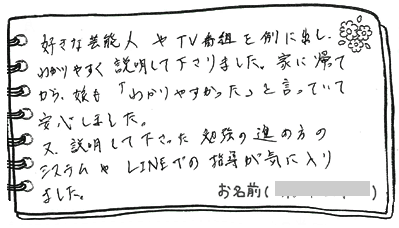 好きな芸能人やTV番組を例に出し、
わかりやすく説明して下さりました。家に帰って
から、娘も「わかりやすかった」と言っていて
安心しました。
又、説明して下さった勉強の進め方の
システムやLINEでの指導が気に入り
ました。
お名前( )